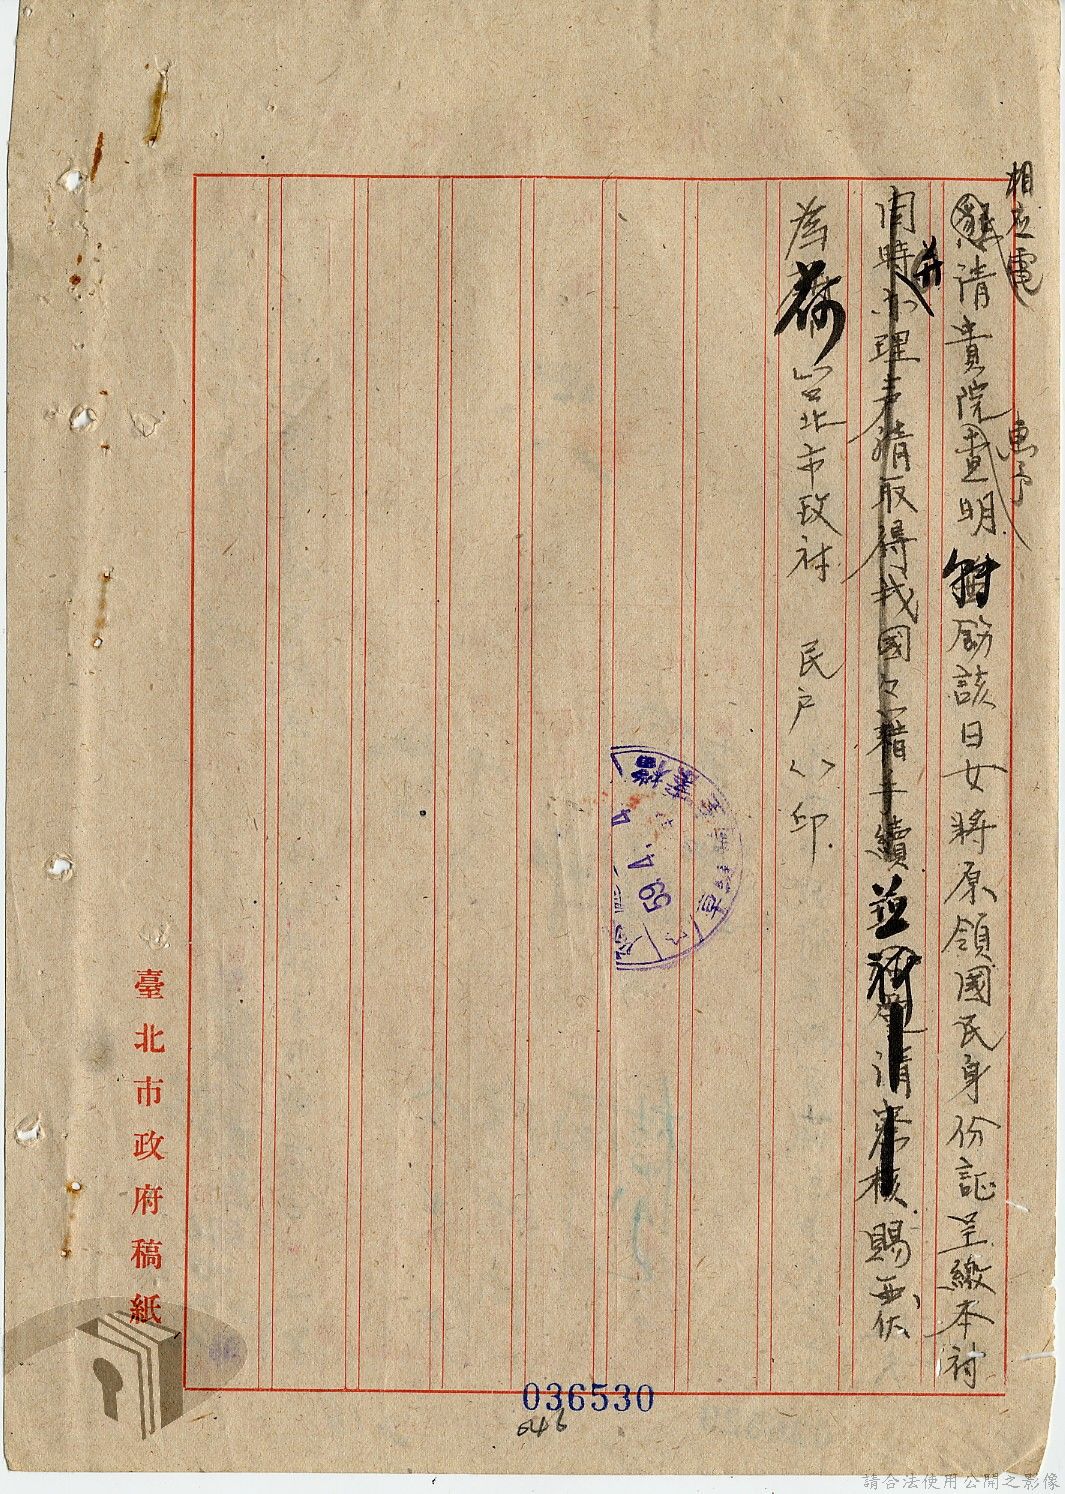 相应電
請貴院查明 飭該日女將原領國民身份証呈繳本府
惠予
同時办理声請取得我國々籍手續並 請察核賜
并
為荷 台北市政府 民戶 印
59.4.
臺北市政府稿紙
036530
046
請合法使用公開之影像